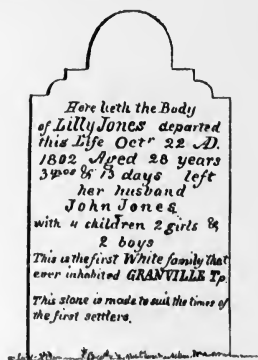 Here lieth the Body
of Lilly Jones departed
this Life Octr 22 AD.
1802 Aged 28 years
3 mos & 13 days left
her husband
John Jones
with 4 children 2 girls &
2 boys
This is the first White family that
ever inhabited GRANVILLE Tp.
This stone is made to suit the times of
the first settlers.